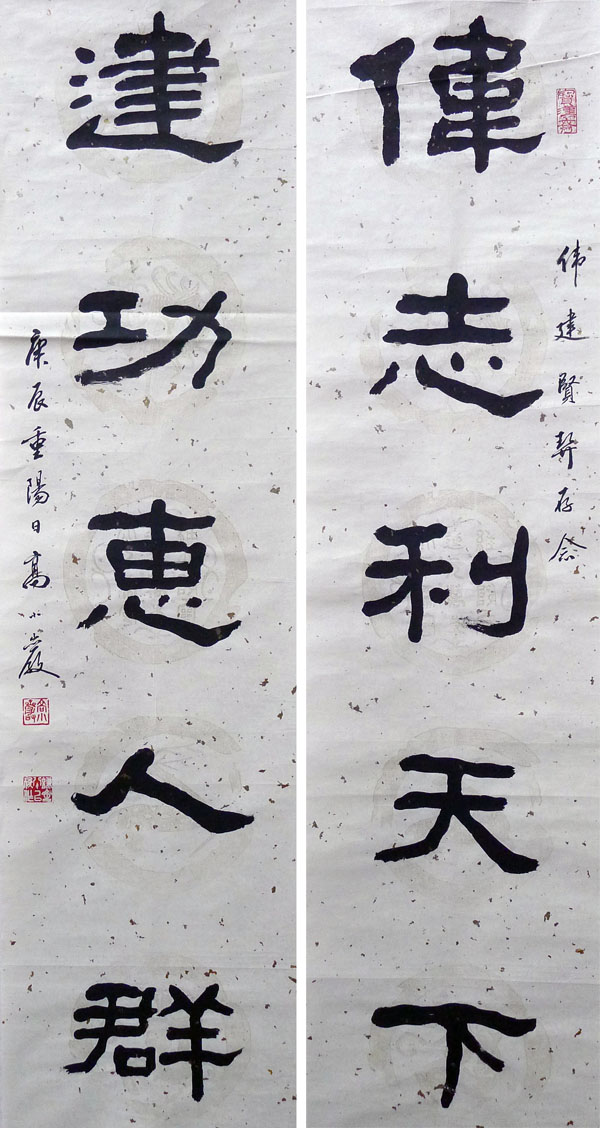 偉志利天下
伟建贤契存念
建功恵人群
庚辰重陽日高小巖